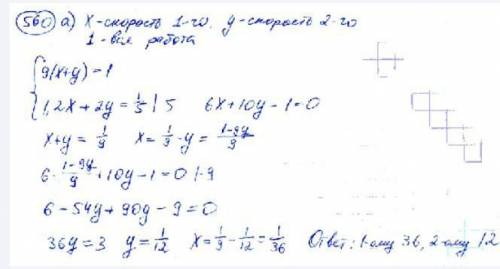 560 а) x-скорость 1-го, y-скорость 2-го
1-вся работа
{ 9(x+y)=1
1,2x+2y=1/5 | 5 6x+10y-1=0
x+y=1/9 x=1/9-y=(1-9y)/9
6·(1-9y)/9+10y-1=0 |·9
6-54y+90y-9=0
36y=3 y=1/12 x=1/9-1/12=1/36 Ответ: 1-ому 36, 2-ому 12